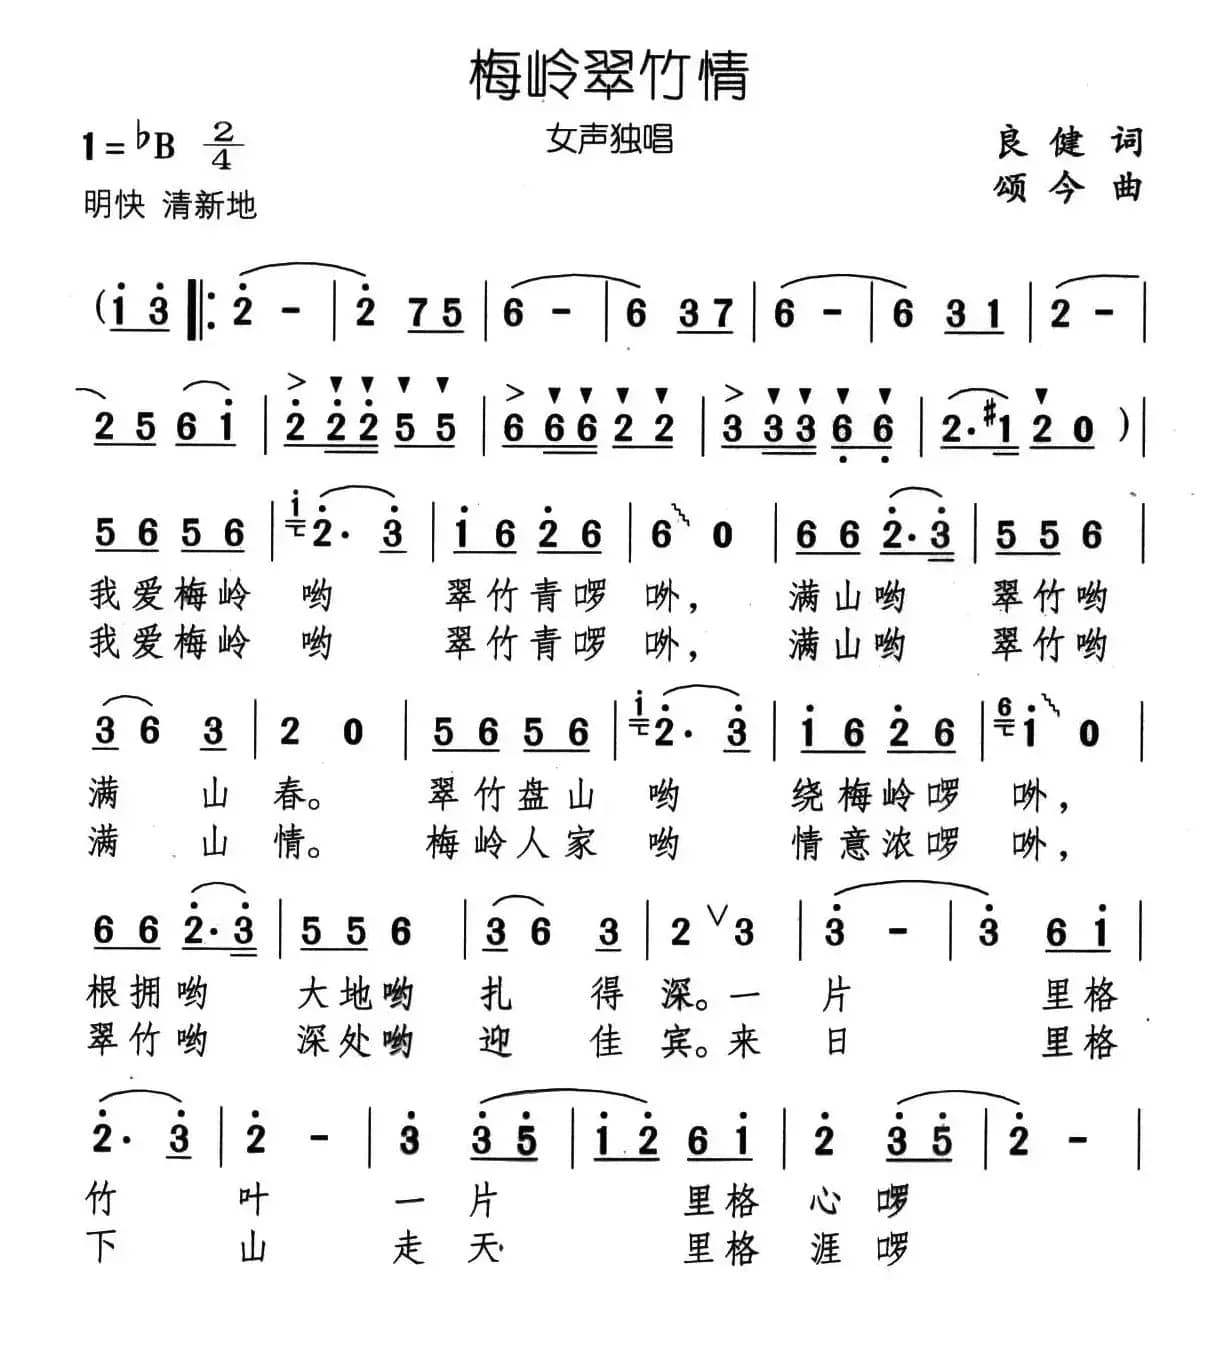 梅岭翠竹情
1=♭B 2/4 女声独唱 良健词
明快 清新地 颂今曲
(i̇ 3̇ ‖: 2̇ - | 2̇ 7 5 | 6 - | 6 3 7 | 6 - | 6 3 1 | 2 - |
2 5 6 i̇ | 2̇ 2̇ 2̇ 5 5 | 6 6 6 2 2 | 3 3 3 6̣ 6̣ | 2· #1 2 0 ) |
5 6 5 6 | i̇ 2̇· 3̇ | i̇ 6 2̇ 6 | 6 0 | 6 6 2̇· 3̇ | 5 5 6 |
我爱梅岭 哟 翠竹青啰 哋, 满山哟 翠竹哟
我爱梅岭 哟 翠竹青啰 哋, 满山哟 翠竹哟
3 6 3 | 2 0 | 5 6 5 6 | i̇ 2̇· 3̇ | i̇ 6 2̇ 6 | 6 i̇ 0 |
满 山 春。 翠竹盘山 哟 绕梅岭啰 哋,
满 山 情。 梅岭人家 哟 情意浓啰 哋,
6 6 2̇· 3̇ | 5 5 6 | 3 6 3 | 2 ∨ 3 | 3̇ - | 3̇ 6 i̇ |
根拥哟 大地哟 扎 得 深。一 片 里格
翠竹哟 深处哟 迎 佳 宾。来 日 里格
2̇· 3̇ | 2̇ - | 3̇ 3̇ 5̇ | i̇ 2̇ 6 i̇ | 2̇ 3̇ 5̇ | 2̇ - |
竹 叶 一 片 里格 心 啰
下 山 走 天 里格 涯 啰